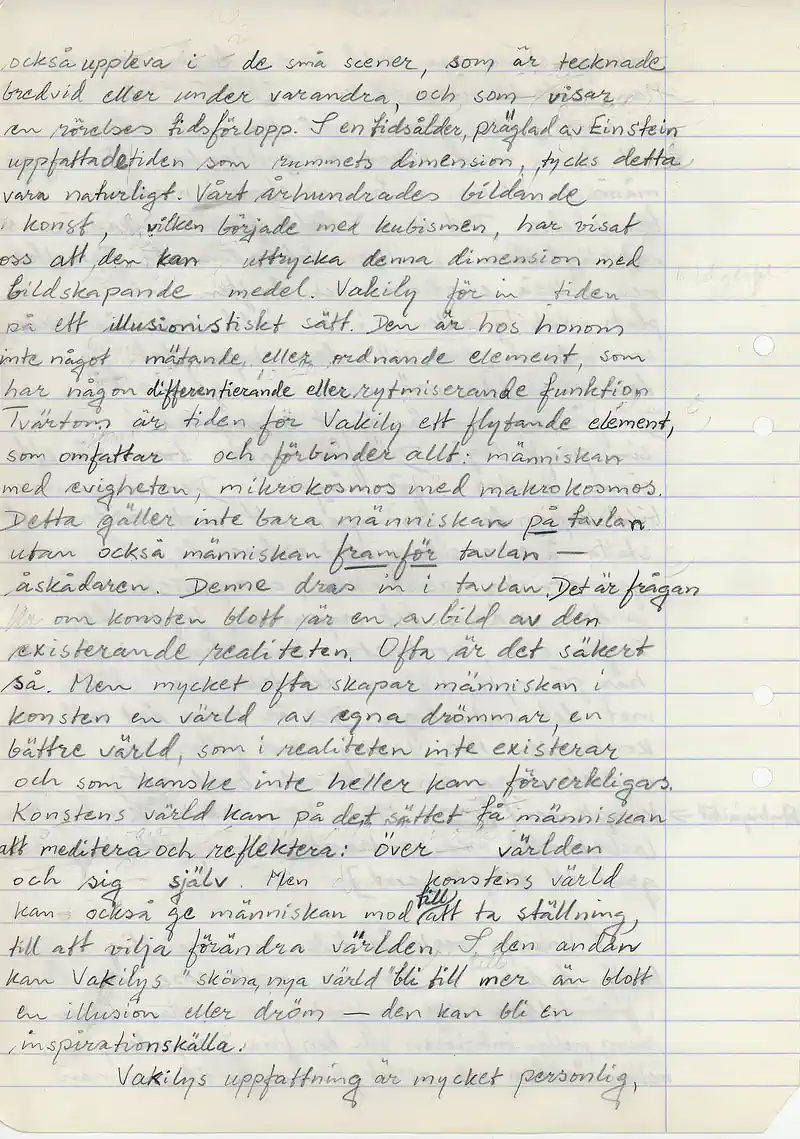 också uppleva i de små scener, som är tecknade
bredvid eller under varandra, och som visar
en rörelses tidsförlopp. I en tidsålder, präglad av Einstein
uppfattade tiden som rummets dimension, tycks detta
vara naturligt. Vårt århundrades bildande
konst, vilken började med kubismen, har visat
oss att den kan uttrycka denna dimension med
bildskapande medel. Vakily för in tiden
på ett illusionistiskt sätt. Den är hos honom
inte något mätande eller ordnande element, som
har någon differentierande eller rytmiserande funktion
Tvärtom är tiden för Vakily ett flytande element,
som omfattar och förbinder allt: människan
med evigheten, mikrokosmos med makrokosmos.
Detta gäller inte bara människan på tavlan
utan också människan framför tavlan —
åskådaren. Denne dras in i tavlan. Det är frågan
om konsten blott är en avbild av den
existerande realiteten. Ofta är det säkert
så. Men mycket ofta skapar människan i
konsten en värld av egna drömmar, en
bättre värld, som i realiteten inte existerar
och som kanske inte heller kan förverkligas.
Konstens värld kan på det sättet få människan
att meditera och reflektera: över världen
och sig själv. Men konstens värld
kan också ge människan mod till att ta ställning,
till att vilja förändra världen. I den andan
kan Vakilys "sköna, nya värld" bli till mer än blott
en illusion eller dröm — den kan bli en
inspirationskälla.
Vakilys uppfattning är mycket personlig,